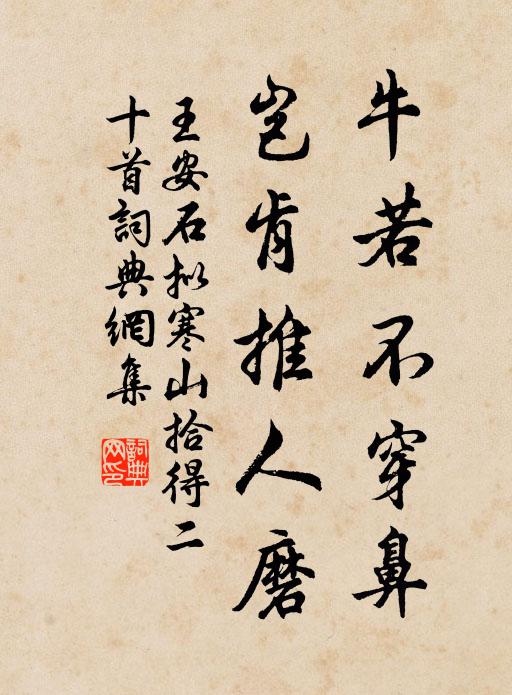 牛若不穿鼻
豈肯推人磨
王安石拟寒山拾得二
十首詞典網集
詞典網印